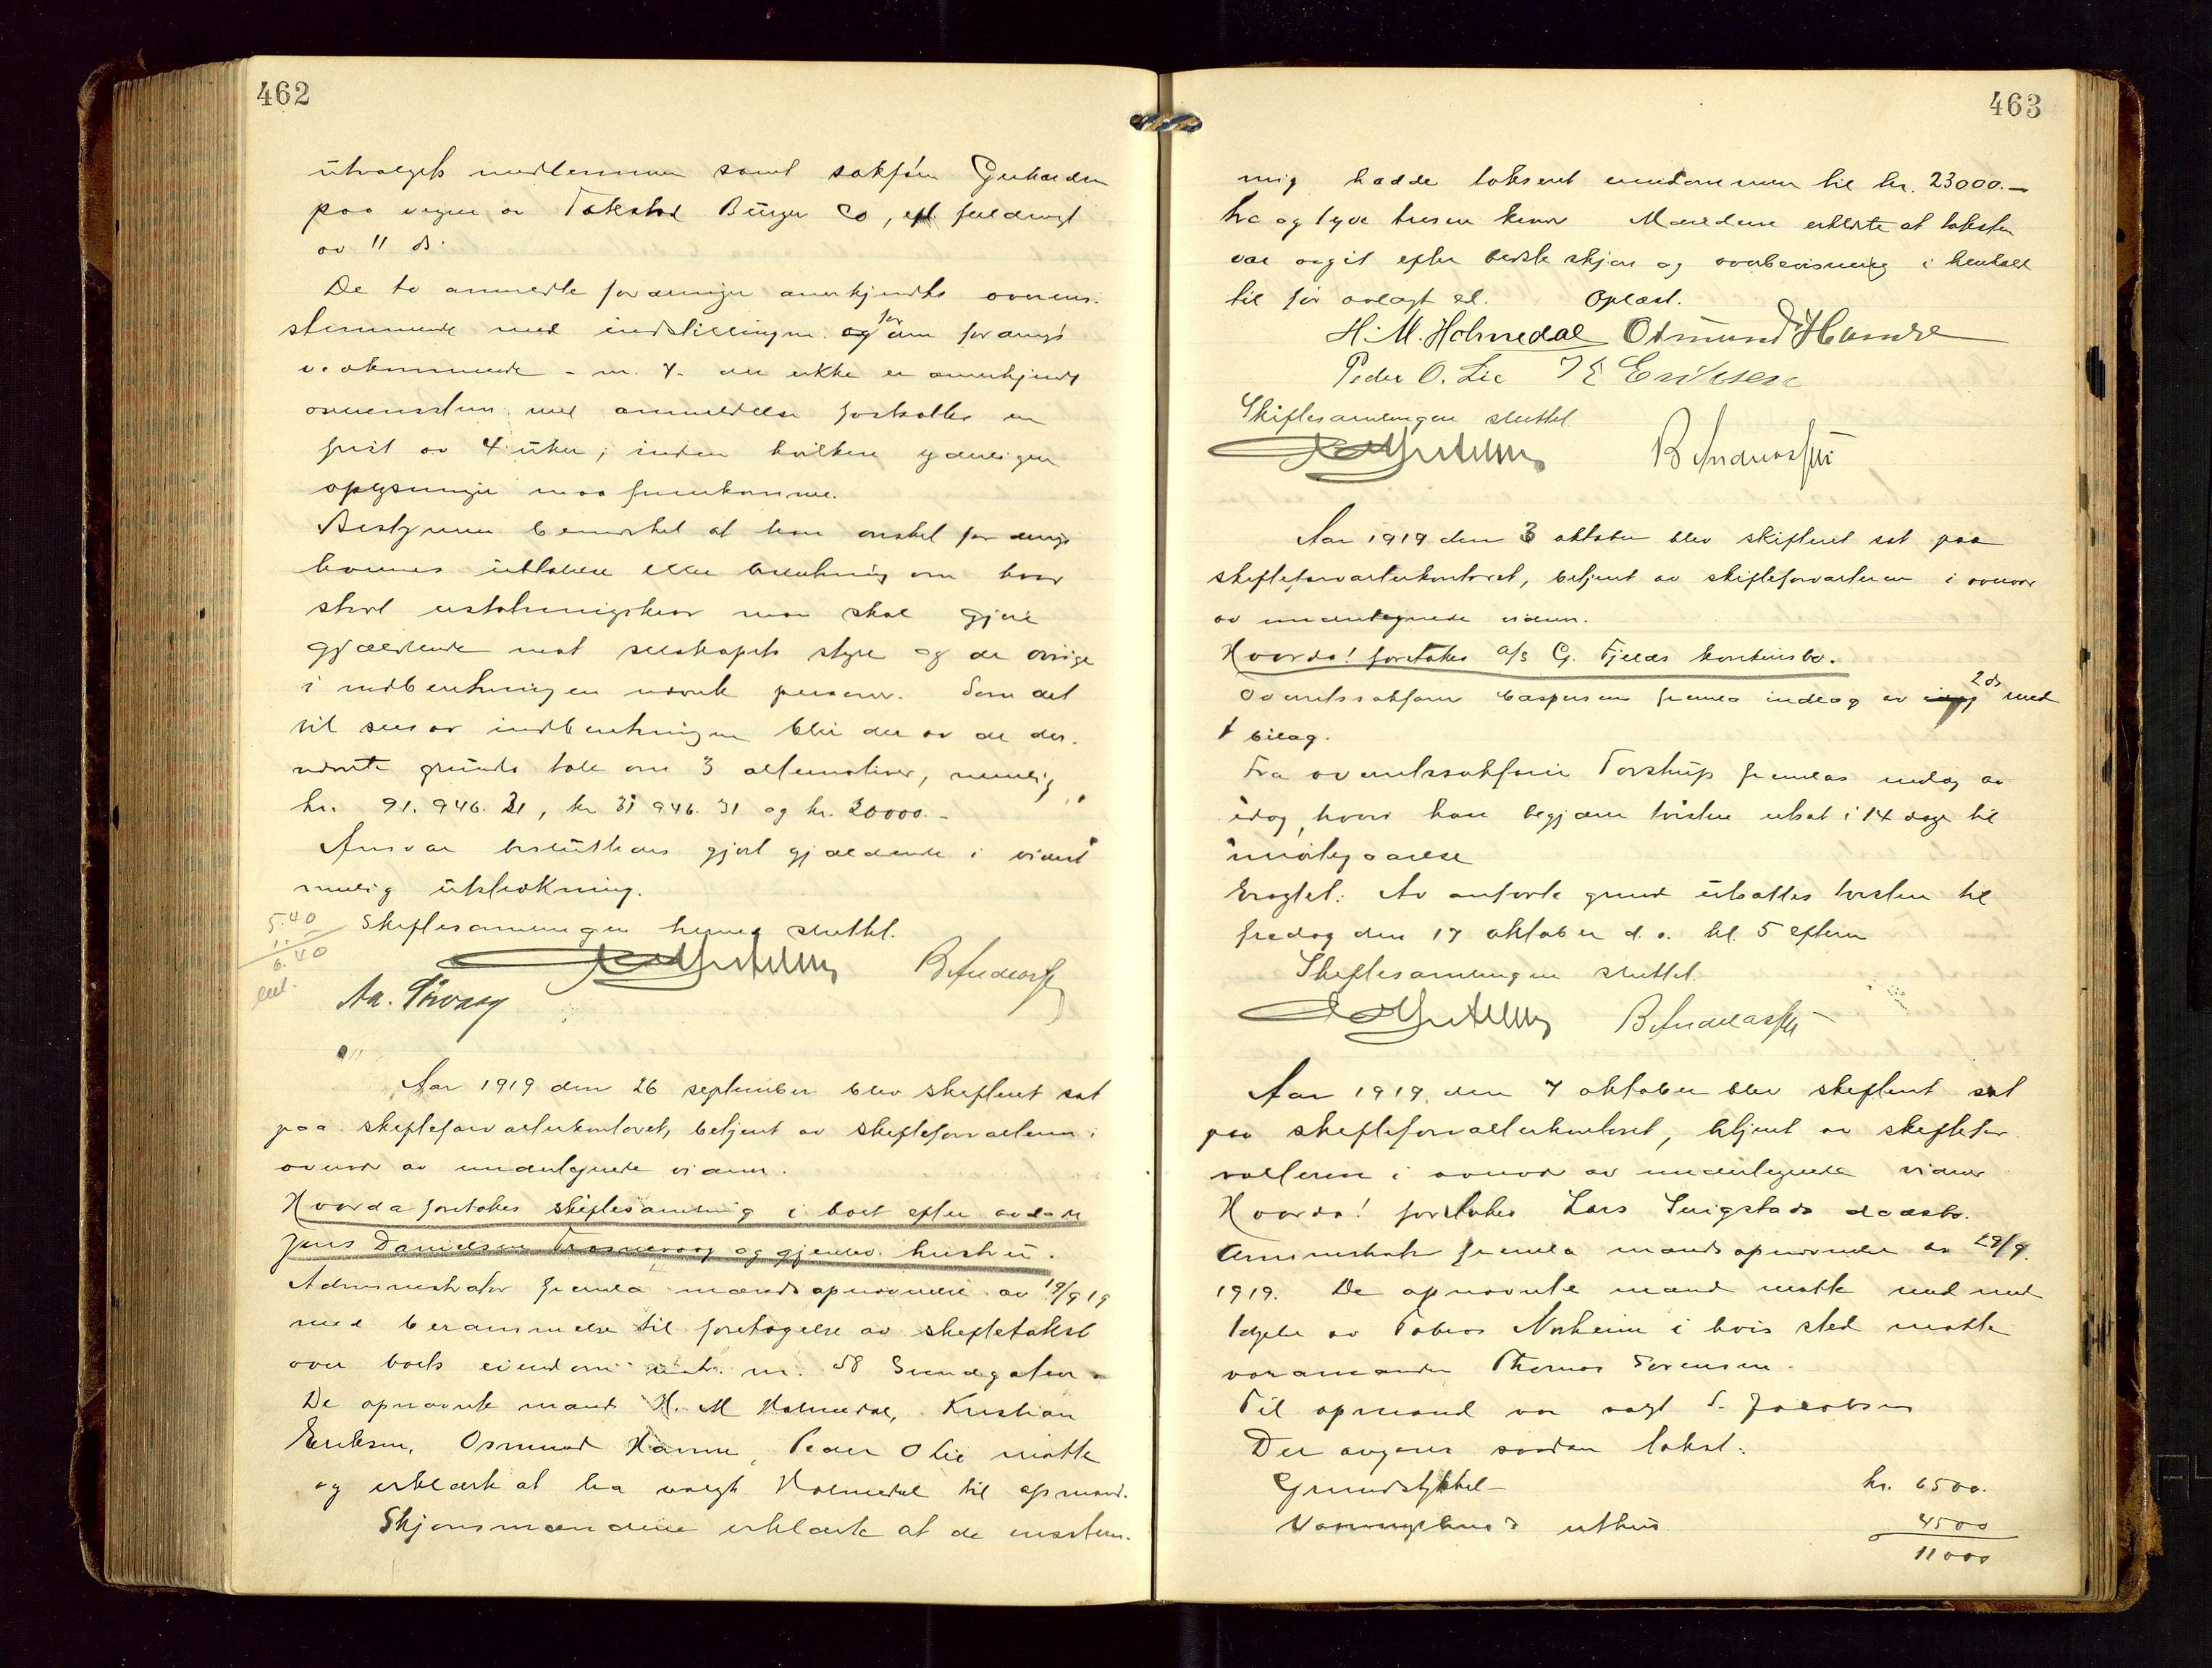 462
utvalgets medlemmer samt sakfører Gerhardsen
paa vegne av Takstad Bürger Co, efl fuldmagt
av 11 ds.
De to anmeldte fordringer anerkjendtes overens-
stemmende med indstillingen. og for den fordrings
vedkommende - nr. 7. der ikke er anerkjendt
overensstem. med anmeldelsen fastsattes en
frist av 4 uker, inden hvilken yderligere
oplysninger maa fremkomme.
Bestyreren bemerket at han ønsket fordrings-
havernes uttalelse eller beslutning om hvor
stort erstatningskrav man skal gjøre
gjældende mot selskapets styre og de øvrige
i indberetningen nævnte personer. Som det
vil sees av indberetningen blir der av de der.
nævnte grunde tale om 3 alternativer, nemlig
kr. 91.946.31, kr 31 946.31 og kr. 30000.-
Ansvar besluttedes gjort gjældende i videst
mulig utstrækning.
5.40
1.
6.40
Skiftesamlingen herved sluttet.
B Andreassen
Aar 1919 den 26 september blev skifteret sat
paa skifteforvalterkontoret, betjent av skifteforvalteren i
overvær av undertegnede vidner.
Hvorda foretokes skiftesamling i boet efter avdøde
Jens Danielsen og gjenlev. hustru.
Administrator fremla mandsopnævnelse av 19/9 19
med berammelse til foretagelse av skiftetakst
over boets eiendom matr. nr. 58 Sundgaten.
De opnævnte mænd H. M Holmedal, Kristian
Eriksen, Osmund Hamre, Peder O Lie møtte
og erklærte at ha valgt Holmedal til opmand.
Skjønsmændene erklærte at de enstem-
463
mig hadde taksert eiendommen til kr. 23000.-
tre og tyve tusen kroner Mændene erklærte at taksten
var avgit efter bedste skjøn og overbevisning i henhold
til før avlagt ed. Oplæst.
H. M. Holmedal Osmund Hamre
Peder O. Lie K Eriksen
Skiftesamlingen sluttet.
B Andreassen
Aar 1919 den 3 oktober blev skifteret sat paa
skifteforvalterkontoret, betjent av skifteforvalteren i overvær
av undertegnede vidner.
Hvorda! foretokes A/S G. Fjelds konkursbo.
Overretssakfører Caspersen fremla indlæg av 2 ds med
1 bilag.
Fra overretssakfører Torstrup fremlaes indlæg av
idag, hvori han begjærer tvisten utsat i 14 dage til
imøtegaaelse
Eragtet: Av anførte grund utsattes tvisten til
fredag den 17 oktober d. a. kl. 5 efterm
Skiftesamlingen sluttet.
B Andreassen
Aar 1919. den 7 oktober blev skifteret sat
paa skifteforvalterkontoret, betjent av skiftefor-
valteren i overvær av undertegnede vidner
Hvorda! foretokes Lars dødsbo.
Administrator fremla mandsopnævnelse av 29/9.
1919. De opnævnte mænd møtte med und-
tagelse av Tobias Norheim i hvis sted møtte
varamanden Thomas Sørensen.
Til opmand var valgt S. Jacobsen
Der avgaves saadan takst:
Grundstykket - kr. 6500.
Vaaningshus & uthus 4500
11000